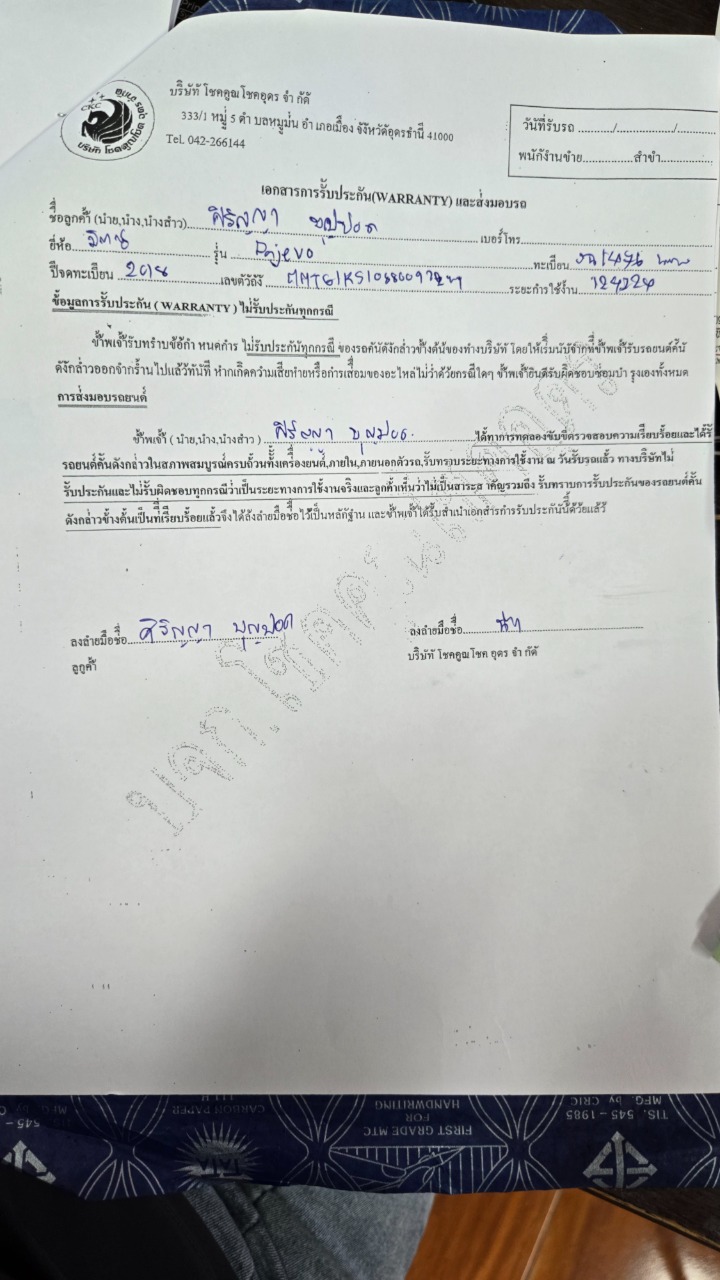 CKC
บริษัท โชคคูณโชคอุดร จำกัด
333/1 หมู่ 5 ตำบลหมูม่น อำเภอเมือง จังหวัดอุดรธานี 41000
Tel. 042-266144
วันที่รับรถ ............/................../..........
พนักงานขาย.................สาขา.................
เอกสารการรับประกัน(WARRANTY) และส่งมอบรถ
ชื่อลูกค้า (นาย,นาง,นางสาว) ศิริญญา บุญปอด เบอร์โทร
ยี่ห้อ รุ่น Pajero ทะเบียน
ปีจดทะเบียน 2018 เลขตัวถัง ระยะการใช้งาน 124324
ข้อมูลการรับประกัน ( WARRANTY ) ไม่รับประกันทุกกรณี
ข้าพเจ้ารับทราบข้อกำหนดการ ไม่รับประกันทุกกรณี ของรถคันดังกล่าวข้างต้นของทางบริษัท โดยให้เริ่มนับจากที่ข้าพเจ้ารับรถยนต์คัน
ดังกล่าวออกจากร้านไปแล้วทันที หากเกิดความเสียหายหรือการเสื่อมของอะไหล่ไม่ว่าด้วยกรณีใดๆ ข้าพเจ้ายินดีรับผิดชอบซ่อมบำรุงเองทั้งหมด
การส่งมอบรถยนต์
ข้าพเจ้า ( นาย,นาง,นางสาว ) ศิริญญา บุญปอด ได้ทำการทดลองขับขี่ตรวจสอบความเรียบร้อยและได้รับ
รถยนต์คันดังกล่าวในสภาพสมบูรณ์ครบถ้วนทั้งเครื่องยนต์,ภายใน,ภายนอกตัวรถ,รับทราบระยะทางการใช้งาน ณ วันรับรถแล้ว ทางบริษัทไม่
รับประกันและไม่รับผิดชอบทุกกรณีว่าเป็นระยะทางการใช้งานจริงและลูกค้าเห็นว่าไม่เป็นสาระสำคัญรวมถึง รับทราบการรับประกันของรถยนต์คัน
ดังกล่าวข้างต้นเป็นที่เรียบร้อยแล้วจึงได้ลงลายมือชื่อไว้เป็นหลักฐาน และข้าพเจ้าได้รับสำเนาเอกสารการรับประกันนี้ด้วยแล้ว
ลงลายมือชื่อ ศิริญญา บุญปอด
ลูกค้า
ลงลายมือชื่อ
บริษัท โชคคูณโชค อุดร จำกัด
CARBON PAPER
FIRST GRADE MTC
FOR
HANDWRITING
TIS. 545-1985
MFG. by CRIC